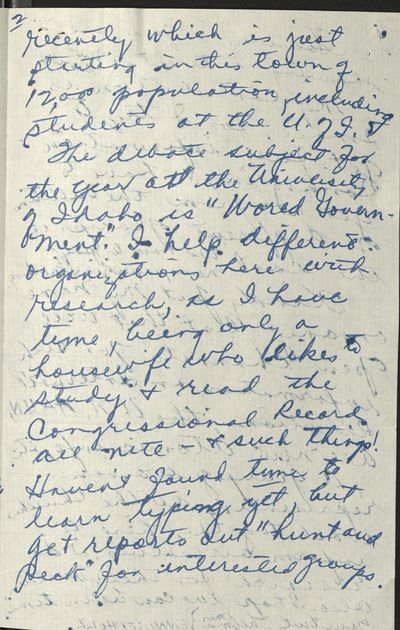 2
recently which is just
starting in this town of
12,000 population, including
students at the U. of I.
The debate subject for
the year at the University
of Idaho is "World Govern-
ment." I help different
organizations here with
research, as I have
time, being only a
housewife who likes to
study & read the
Congressional Record
all nite - & such things!
Haven't found time to
learn typing yet, but
get reports out "hunt and
peck" for interested groups.